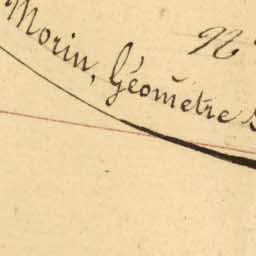 N
Morin, Géomètre